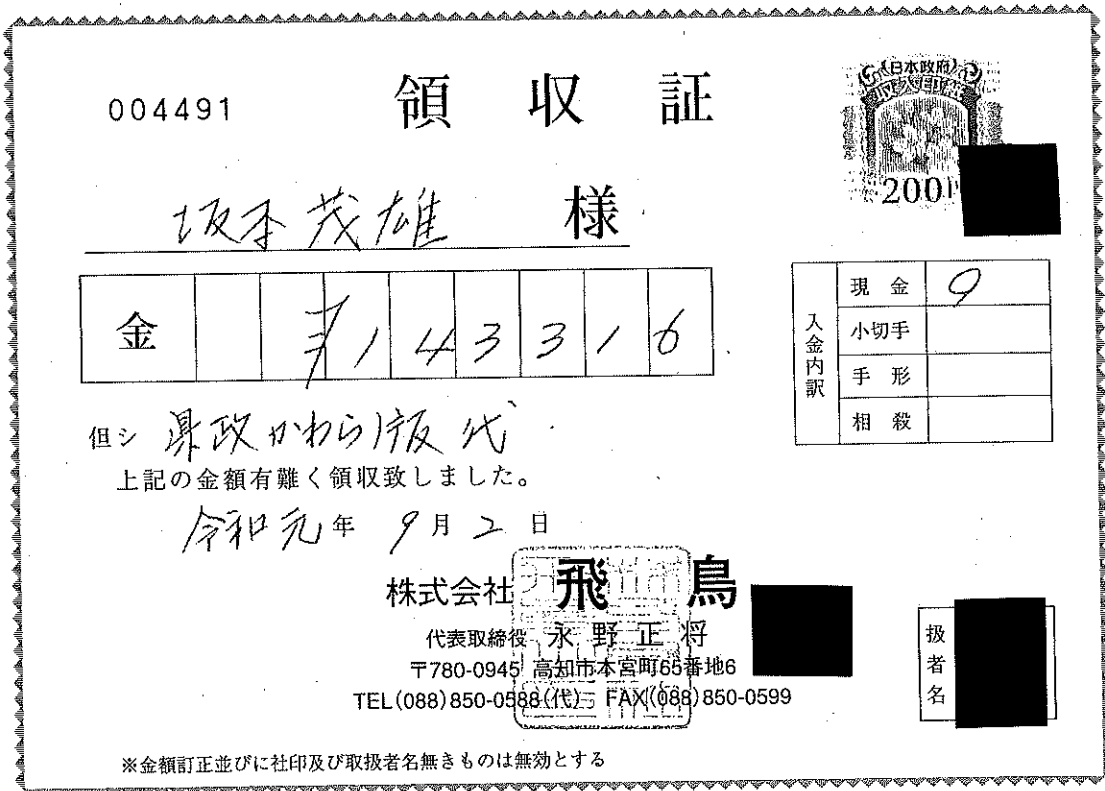 004491
領収証
日本政府
収入印紙
200
坂本茂雄 様
金 ¥143316
入金内訳
現金 9
小切手
手形
相殺
但シ 県政かわら版代
上記の金額有難く領収致しました。
令和元年 9月2日
株式会社 飛鳥
代表取締役 永野正将
〒780-0945 高知市本宮町65番地6
TEL(088)850-0588(代) FAX(088)850-0599
扱者名
※金額訂正並びに社印及び取扱者名無きものは無効とする